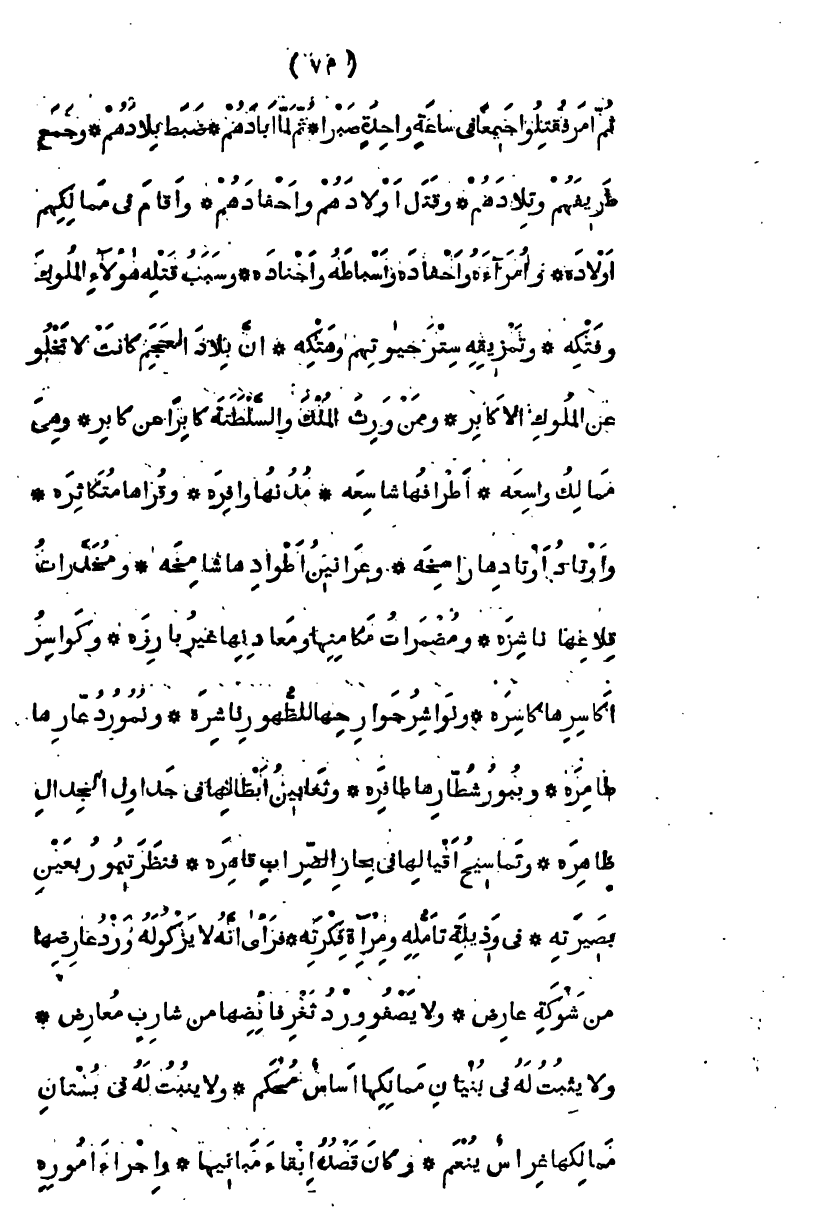 (٧٣)
ثُمَّ اَمَرَ فَقُتِلُوا جَمِيعًا فى ساعَةٍ واحِدةٍ صَبْرا * ثُمّ لَمّا اَبادَهُمْ * ضَبَط بِلادَهُمْ * وجَمَع
طَرِيفَهُمْ وتِلادَهُمْ * وقَتَل اَوْلادَهُمْ واَحْفادَهُمْ * واَقامَ فى مَمالِكِهم
اَوْلادَه * واُمَرآءَهُ واَحْفادَه واَسْباطَهُ واَجْنادَه * وسَبَبُ قَتْلِه هٰؤلآءِ المُلوكَ
وفَتْكِه * وتَمْزيقِهِ سِتْرَ حَيٰوتِهِم وهَتْكِه * انَّ بِلادَ العَجَمِ كانَتْ لا تَخْلُو
عَن المُلوكِ الاَكابِر * ومِمَّنْ وَرِثَ المُلْكَ والسَّلْطَنَة كابِرًا عن كابِر * وهِىَ
مَمالِكُ واسِعَه * اَطْرافُها شاسِعَه * مُدُنُها وافِرَه * وقُراها مُتَكاثِرَه *
واَوْتادُ اَوْتادِها راسِخَه * وعَرانينُ اَطْوادِها شامِخَه * ومُخَدَّراتُ
قِلاعِها ناشِزَه * ومُضْمَراتُ مَكامِنِها ومَعادِنِها غيرُ بارِزَه * وكَواسِرُ
اَكاسِرِها كاسِرَه * ونَواشِرُ جَوارِحِها للظُّهورِ ناشِرَة * ونُمُورُ دُعّارِها
طامِرَة * وبُبُورُ شُطّارِها طافِرَه * وثَعابينُ اَبْطالِها فى جَداوِلِ الجِدالِ
ظاهِرَه * وتَماسيحُ اَقْيالِها فى بِحارِ الضِّرابِ قاهِرَه * فنَظَرَ تِيمُورُ بعَيْنِ
بَصِيرَتِهِ * فى وَذيلَةِ تامُّلِهِ ومِرْآةِ فِكْرَتِه * فرَأى اَنَّهُ لا يَزْكُو لَهُ وَرْدُ عارِضِها
من شَوْكَةِ عارِض * ولا يَصْفُو وِرْدُ ثَغْرِ فائِضِها من شارِبٍ مُعارِض *
ولا يثبُتُ لَهُ فى بُنْيانِ مَمالِكِها اَساسٌ مُحْكَم * ولا ينبُتُ لَهُ فى بُسْتانِ
مَمالِكها غِراسٌ يُنْعَم * وكانَ قَصْدُهُ اِبْقاءَ مَبانيها * واِجْراءَ اُمُورِهِ